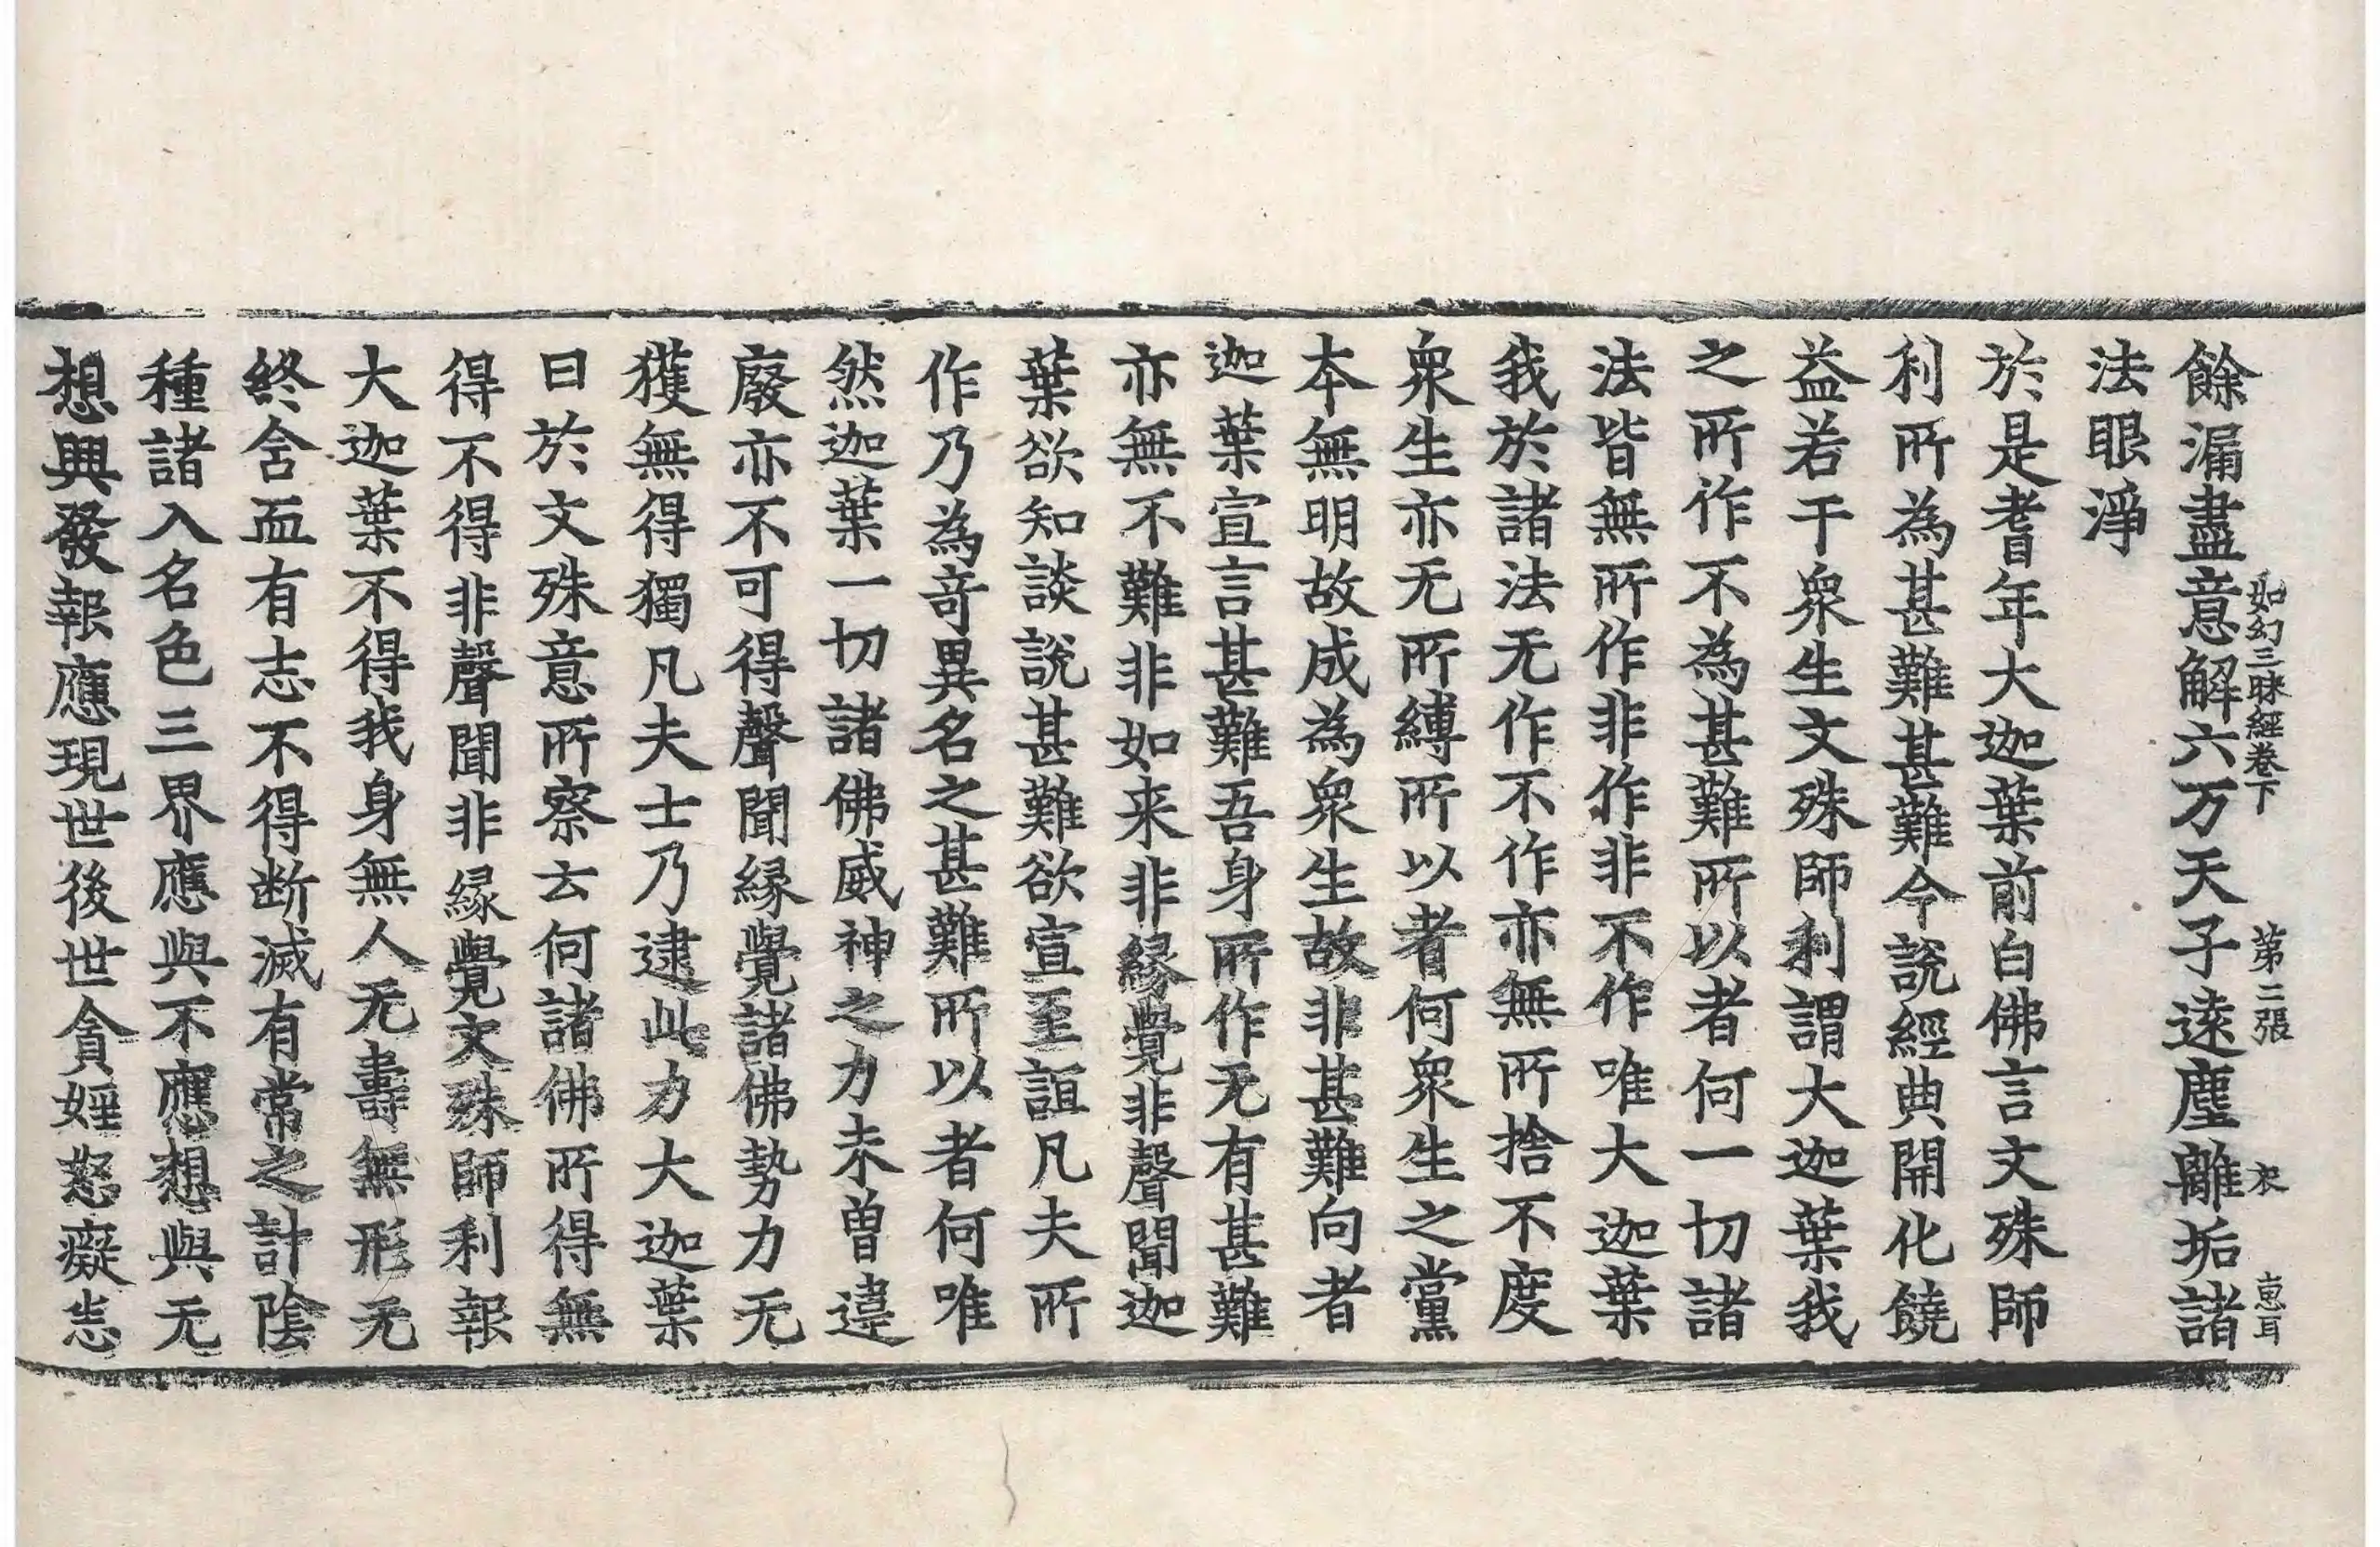 如幻三昧經卷下 第二張 衣 惠耳
餘漏盡意解六万天子遠塵離垢諸
法眼淨
於是耆年大迦葉前白佛言文殊師
利所為甚難甚難今說經典開化饒
益若干衆生文殊師利謂大迦葉我
之所作不為甚難所以者何一切諸
法皆無所作非作非不作唯大迦葉
我於諸法无作不作亦無所捨不度
衆生亦无所縛所以者何衆生之黨
本無明故成為衆生故非甚難向者
迦葉宣言甚難吾身所作无有甚難
亦無不難非如来非縁覺非聲聞迦
葉欲知談說甚難欲宣至誼凡夫所
作乃為奇異名之甚難所以者何唯
然迦葉一切諸佛威神之力未曽違
廢亦不可得聲聞縁覺諸佛勢力无
獲無得獨凡夫士乃逮此力大迦葉
曰於文殊意所察云何諸佛所得無
得不得非聲聞非縁覺文殊師利報
大迦葉不得我身無人无壽無形无
終舍而有志不得断滅有常之計陰
種諸入名色三界應與不應想與无
想興發報應現世後世貪婬怒癡恚